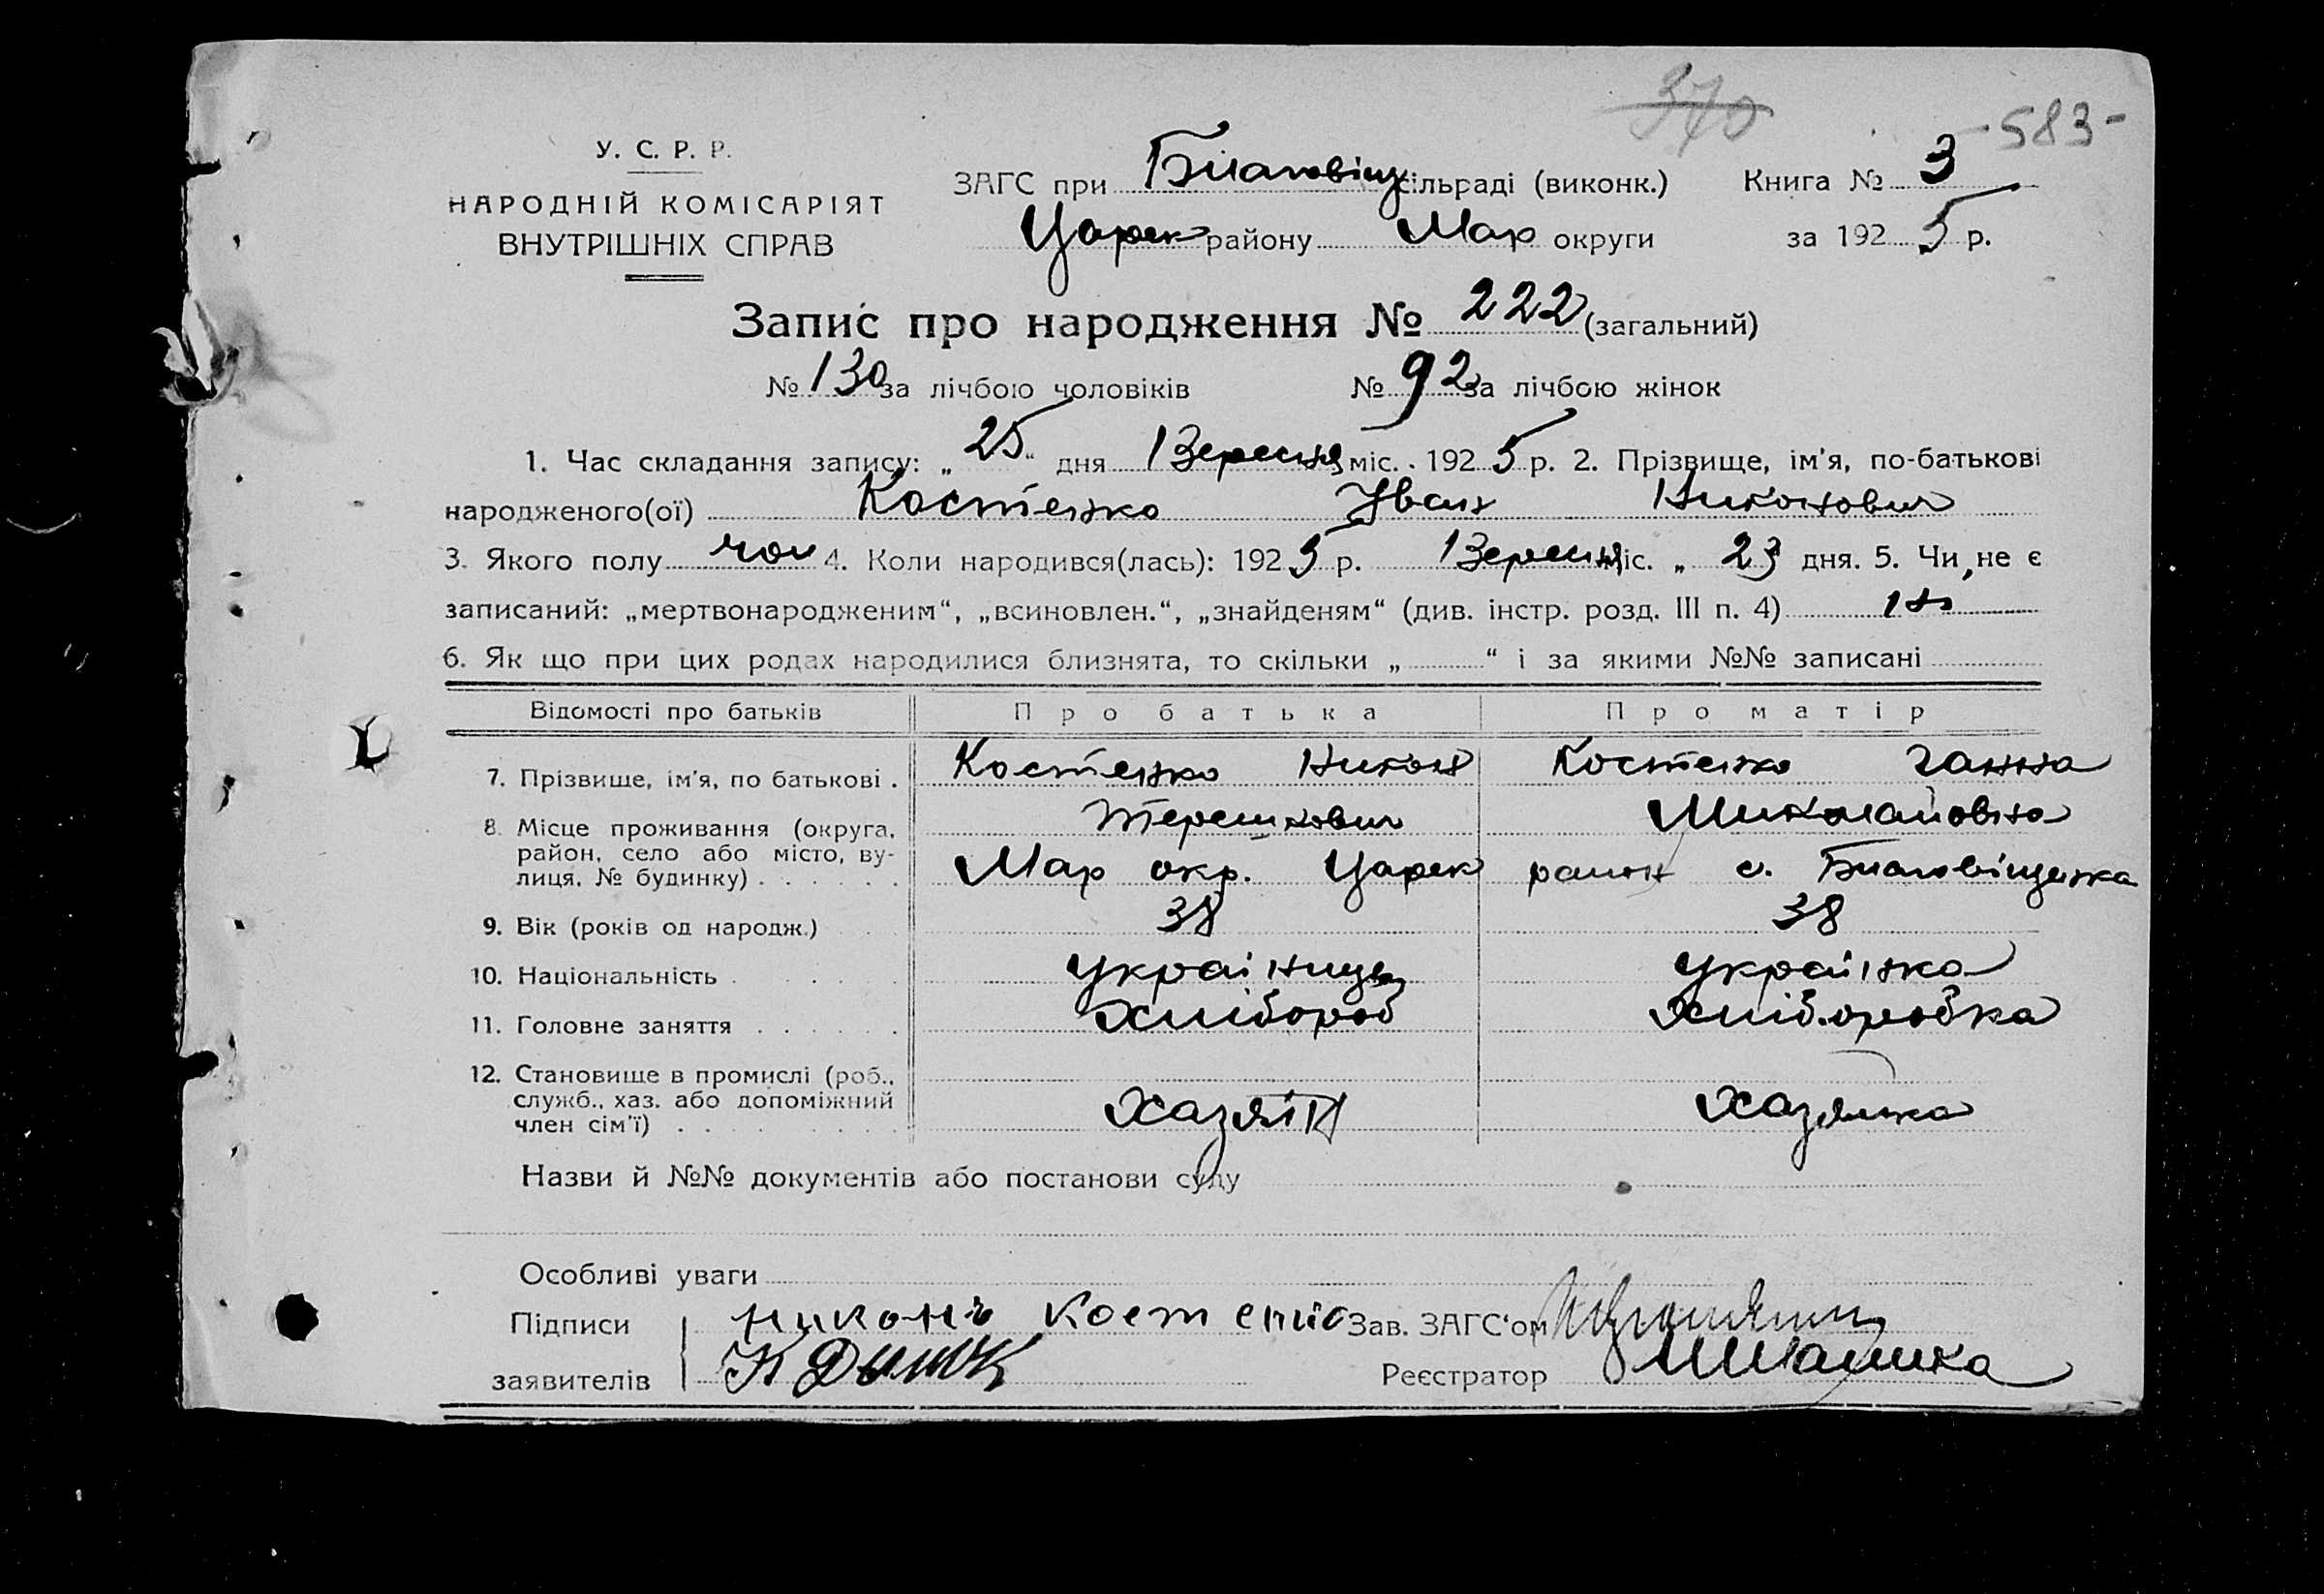 370 -583-
У. С. Р. Р.
НАРОДНІЙ КОМІСАРІЯТ
ВНУТРІШНІХ СПРАВ
ЗАГС при Благовіщ. сільраді (виконк.) Книга № 3
Царек району Мар округи за 1925 р.
Запис про народження № 222 (загальний)
№ 130 за лічбою чоловіків № 92 за лічбою жінок
1. Час складання запису: „25“ дня Вересня міс. 1925 р. 2. Прізвище, ім'я, по-батькові
народженого(ої) Костенко Іван Никонович
3. Якого полу чол 4. Коли народився(лась): 1925 р. Вересня міс. „23 дня. 5. Чи не є
записаний: „мертвонародженим“, „всиновлен.“, „знайденям“ (див. інстр. розд. III п. 4) ні
6. Як що при цих родах народилися близнята, то скільки „ “ і за якими №№ записані
Відомості про батьків Про батька Про матір
7. Прізвище, ім'я, по батькові . Костенко Никон Костенко Ганна
Терешкович Миколаївна
8. Місце проживання (округа,
район, село або місто, ву-
лиця, № будинку) . . . . . . Мар окр. Царек район с. Благовіщенка
9. Вік (років од народж.) 38 38
10. Національність . . . . Українець Українка
11. Головне заняття . . . . . Хлібороб Хліборобка
12. Становище в промислі (роб.,
служб., хаз. або допоміжний
член сім'ї) . . . . . . Хазяїн Хазяйка
Назви й №№ документів або постанови суду
Особливі уваги
Підписи никонъ Зав. ЗАГС'ом
заявителів Реєстратор